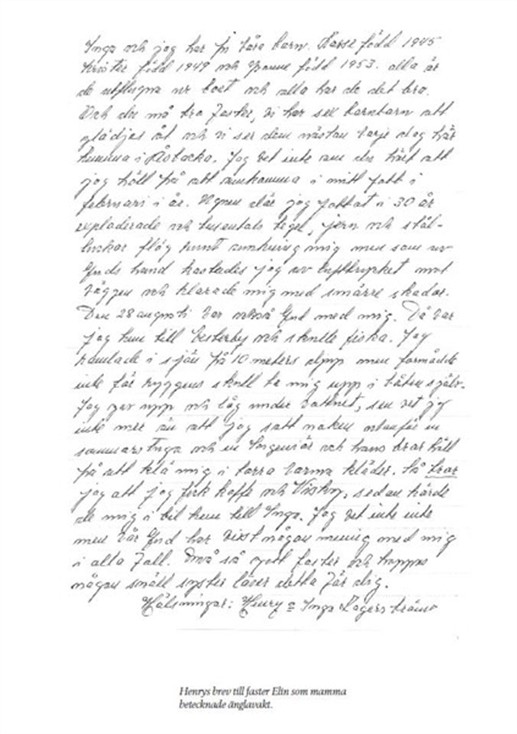 Inga och jag har fått våra barn. Lasse född 1945
Krister född 1949 och Yvonne född 1953. alla är
de utflugna ur boet och alla har de det bra.
Och du må tro faster, vi har sex barnbarn att
glädjas åt och vi ser dem nästan varje dag här
hemma i Robäcks. Jag vet inte om du hört att
jag höll på att omkomma i mitt jobb i
februari i år. Ugnen där jag jobbat i 30 år
exploderade och tusentals tegel, järn och stål-
luckor flög runt omkring mig men som av
Guds hand kastades jag av lufttrycket mot
väggen och klarade mig med smärre skador.
Den 28 augusti var också Gud med mig. Då var
jag hem till Vesterby och skulle fiska. Jag
ramlade i sjön på 10 meters djup men förmådde
inte för ryggens skull ta mig upp i båten själv.
Jag gav upp och låg under vattnet, sen vet jag
inte mer än att jag satt naken utanför en
sommarstuga och en Ingeniör och hans brar höll
på att klä mig i torra varma kläder. Så tror
jag att jag fick kaffe och Visky, sedan körde
de mig i bil hem till Inga. Jag vet inte inte
men vår Gud har visst någon mening med mig
i alla fall. Må så gott faster och hoppas
någon snäll syster läser detta för dig.
Hälsningar: Henry o Inga Lagerström
Henrys brev till faster Elin som mamma
betecknade änglavakt.